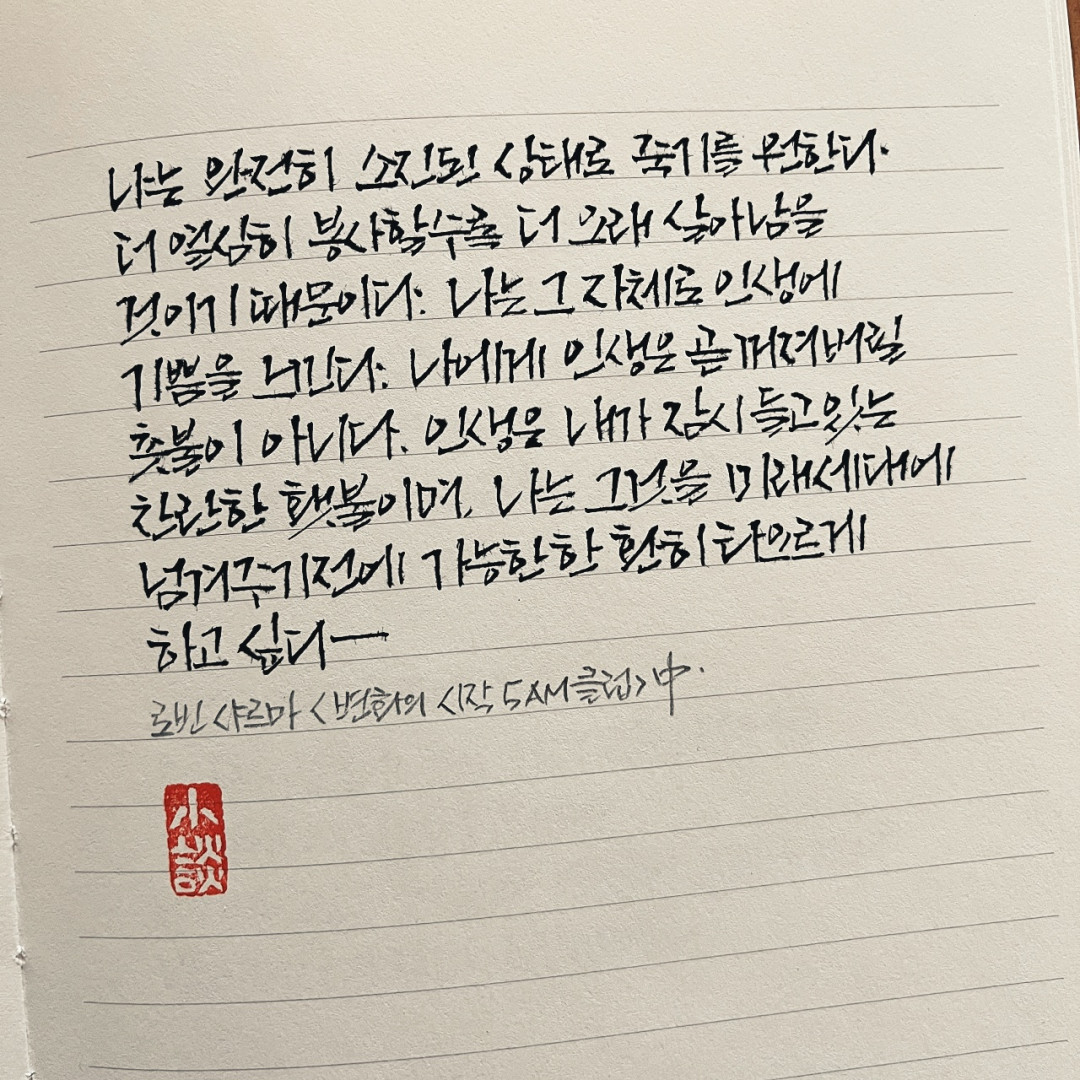 나는 완전히 소진된 상태로 죽기를 원한다.
더 열심히 봉사할수록 더 오래 살아남을
것이기 때문이다. 나는 그 자체로 인생에
기쁨을 느낀다. 나에게 인생은 곧 꺼져버릴
촛불이 아니다. 인생은 내가 잠시 들고있는
찬란한 횃불이며, 나는 그것을 미래세대에
넘겨주기전에 가능한한 환히 타오르게
하고 싶다—
로빈 샤르마 <변화의 시작 5AM클럽> 中.
小
談